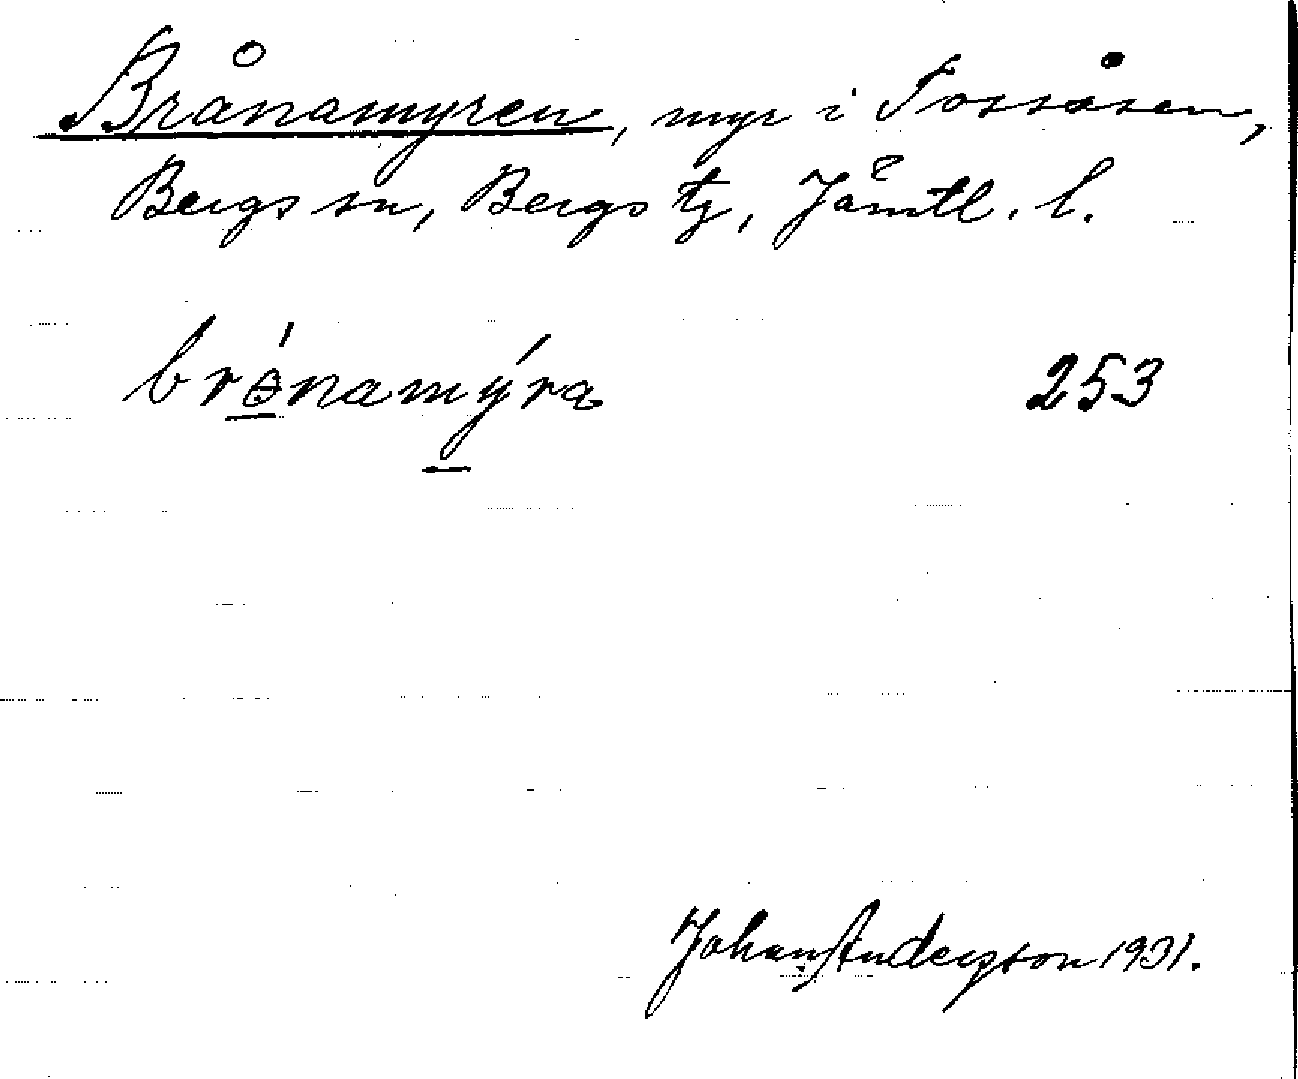 Brånamyren, myr i Tossåsen,
Bergs sn, Bergs tg, Jämtl. l.
brɵ́namýra 253
Johan Andersson 1931.